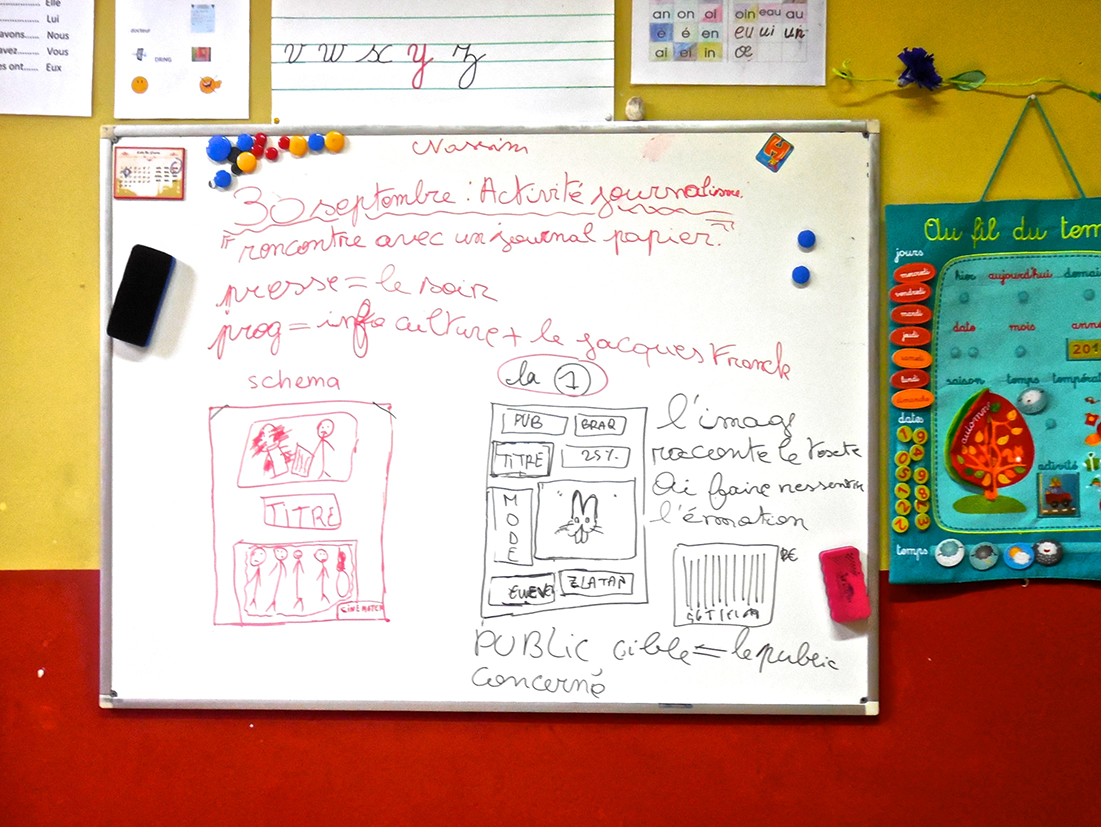 Elle
Lui
avons...... Nous
avez...... Vous
es ont...... Eux
docteur
DRING
v w x y z
an on oi
é en
ai ei in
oin eau au
eu ui un
œ
Nassim
30 septembre : Activité journalisme.
rencontre avec un journal papier.
presse = le soir
prog = info culture + le Jacques Franck
schema
TITRE
CINEMATEK
la 1
PUB BRAQ
TITRE 25%
MODE
ZLATAN
l'image
raconte le texte
l'émotion
PUBLIC cible = le public
concerné
Au fil du tem
jours
mercredi
vendredi
mardi
jeudi
samedi
lundi
dimanche
hier aujourd'hui demai
date mois anné
201
saison temps températ
automne
dates
activité
temps